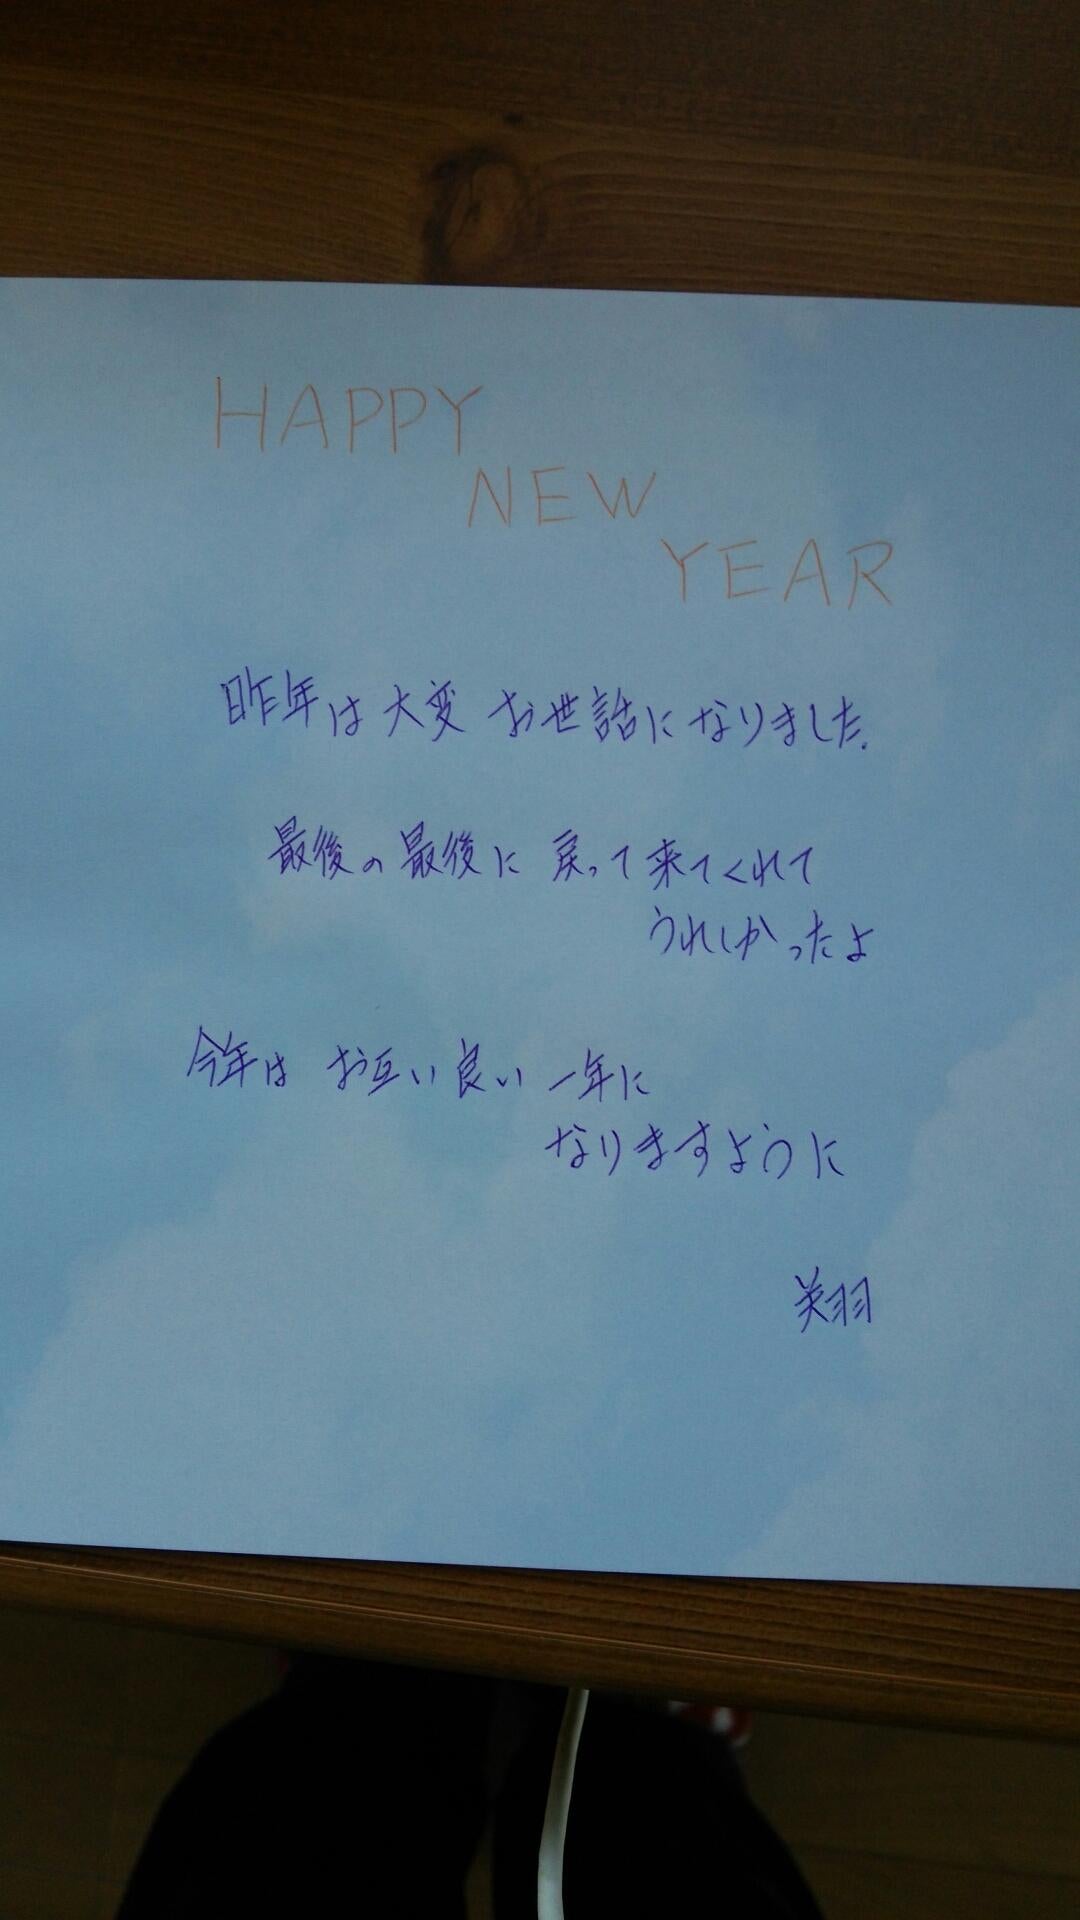 HAPPY
NEW
YEAR
昨年は大変 お世話になりました.
最後の最後に 戻って来てくれて
うれしかったよ
今年は お互い良い一年に
なりますように
美羽